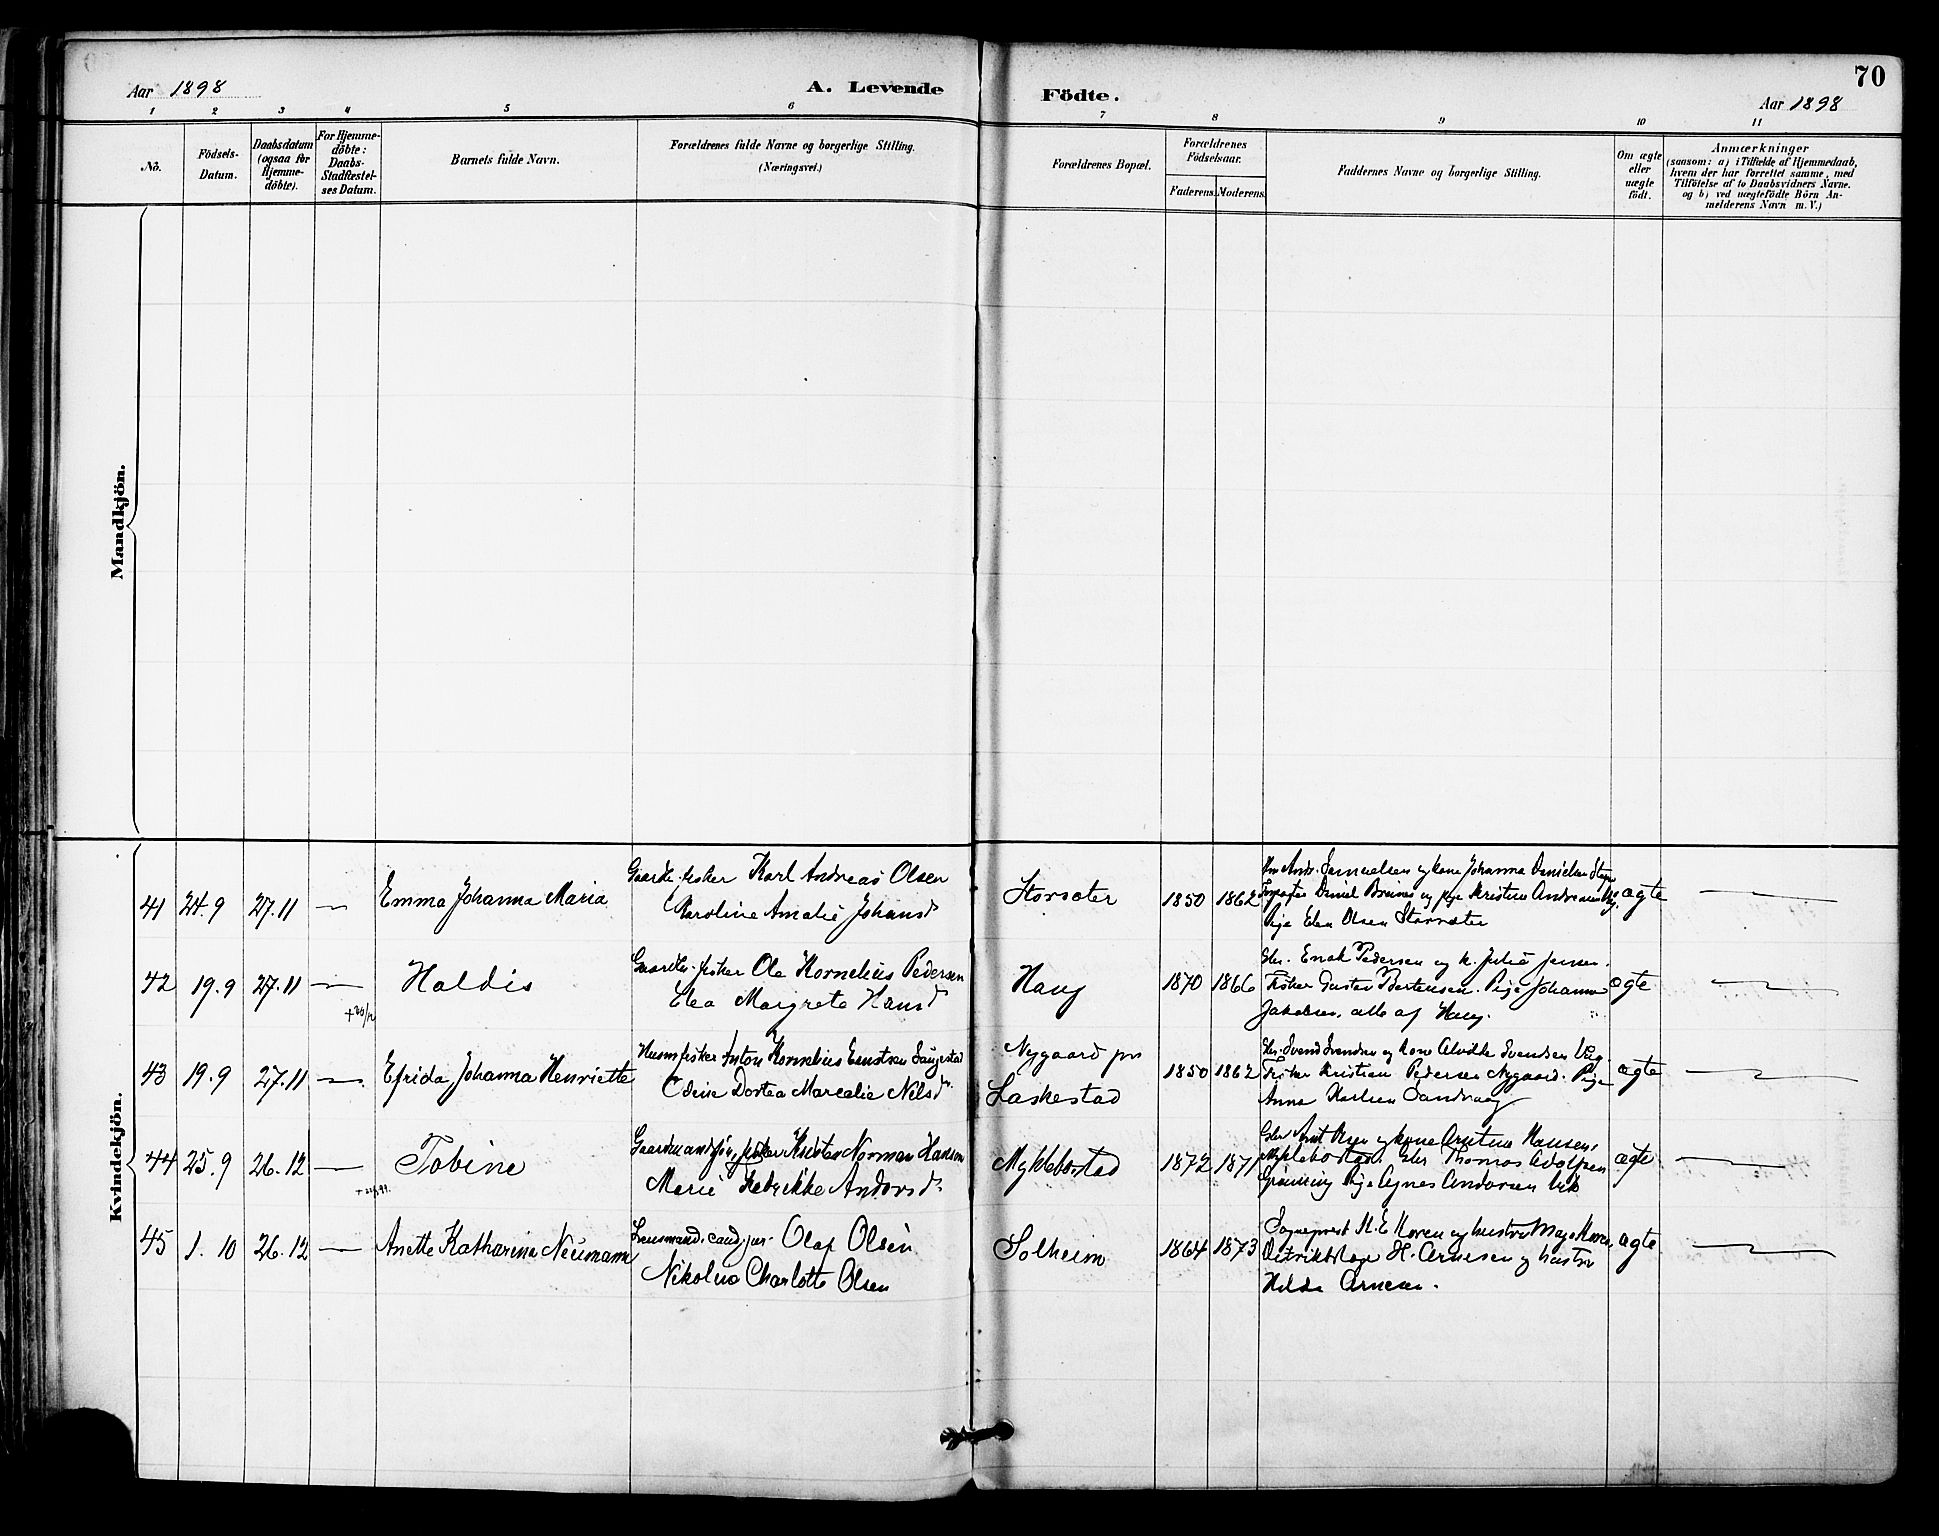 70
Aar 1898
A. Levende Födte.
Aar 1898
1 2 3 4 5 6 7 8 9 10 11
No.
Födsels-
Datum.
Daabsdatum
(ogsaa for
Hjemme-
döbte).
For Hjemme-
döbte:
Daabs-
Stadfæstel-
ses Datum.
Barnets fulde Navn.
Forældrenes fulde Navne og borgerlige Stilling.
(Næringsvei.)
Forældrenes Bopæl.
Forældrenes
Födselsaar.
Faderens.
Moderens.
Faddernes Navne og borgerlige Stilling.
Om ægte
eller
uægte
födt.
Anmærkninger
(saasom: a) i Tilfælde af Hjemmedaab,
hvem der har forrettet samme, med
Tilföielse af to Daabsvidners Navne.
og b) ved uægtefödte Börn An-
melderens Navn m. V.)
Mandkjön.
Kvindekjön.
41 24.9 27.11 — Emma Johanna Maria
Gaardbr. fisker Karl Andreas Olsen
Karoline Amalie Johansd
Storsæter 1850 1862
Andr. Samuelsen og kone Johanna Danielsen
Daniel og pige Kristine Andreasen
Pige Elen Olsen Storsæter
ægte —
42 19.9 27.11 — Haldis
Gaardbr. fisker Ole Kornelius Pedersen
Elea Margrete Hansd
Haug 1870 1866
Gbr. Enok Pedersen og k. Julie Jensen.
Fisker Gustav Bertensen. Pige Johanna
Jakobsen, alle af Haug.
ægte —
43 19.9 27.11 — Efrida Johanna Henriette
Husm. fisker Anton Kornelius Ernstsen
Odine Dortea Marcelie Nilsd.
Nygaard pr
Laskestad
1850 1862
Gbr. Svend Svendsen og kone Alvilde Svendsen
Fisker Kristian Pedersen Nygaard. Pige
Anna Karlsen Sandvaag
ægte —
44 25.9 26.12 — Tobine
Gaardmandssøn, fisker Kristen Norman Hansen
Marie Fredrikke Andorsd.
Myklebostad 1872 1871
Gbr Arnt Olsen og kone Hansen,
Myklebostad. Gbr Thomas Adolfsen
Grønning Pige Agnes Andorsen Vik
ægte —
45 1.10 26.12 — Anette Katharina Neumann
Lensmand, cand. jur. Olaf Olsen
Nikolina Charlotte Olsen
Solheim 1864 1873
Sogneprest H. E. Koren og hustru
Distriktslæge H. Arnesen og hustru
Hilda Arnesen.
ægte —